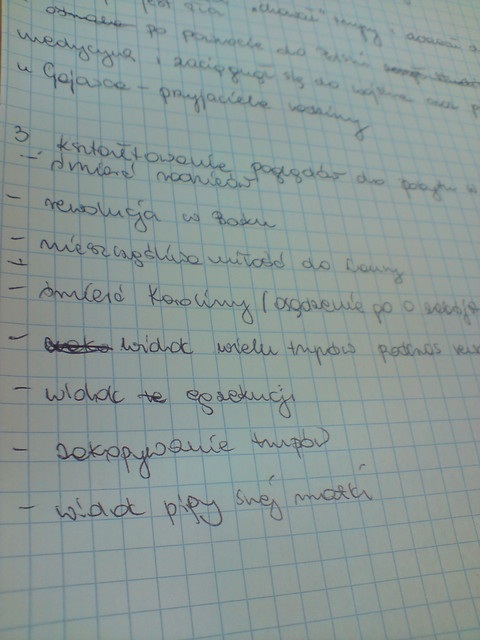 po powrocie do
medycyną i zaciągnął się do wojska
u Gajowca - przyjaciela rodziny
3. Kształtowanie poglądów do
- śmierć rodziców
- rewolucja w Baku
- nieszczęśliwa miłość do Laury
- śmierć Karoliny (osądzenie go o zabójs
- widok wielu trupów podczas rew
- widok egzekucji
- zakopywanie trupów
- widok pipy swej matki